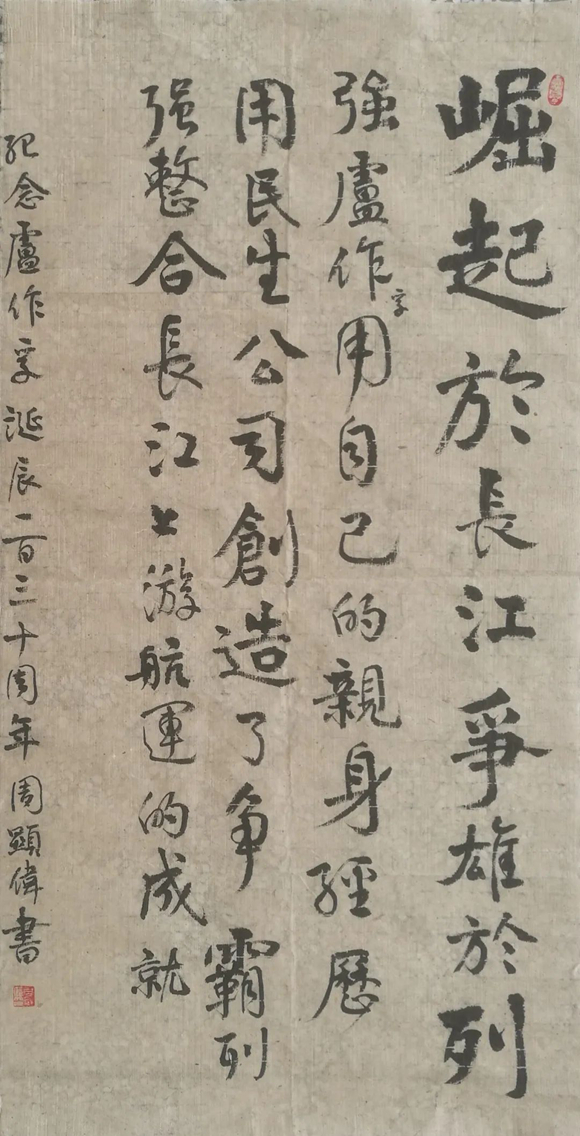 崛起於長江爭雄於列
強盧作孚用自己的親身經歷
用民生公司創造了争霸列
强整合長江上游航運的成就
紀念盧作孚誕辰一百三十周年周顯偉書